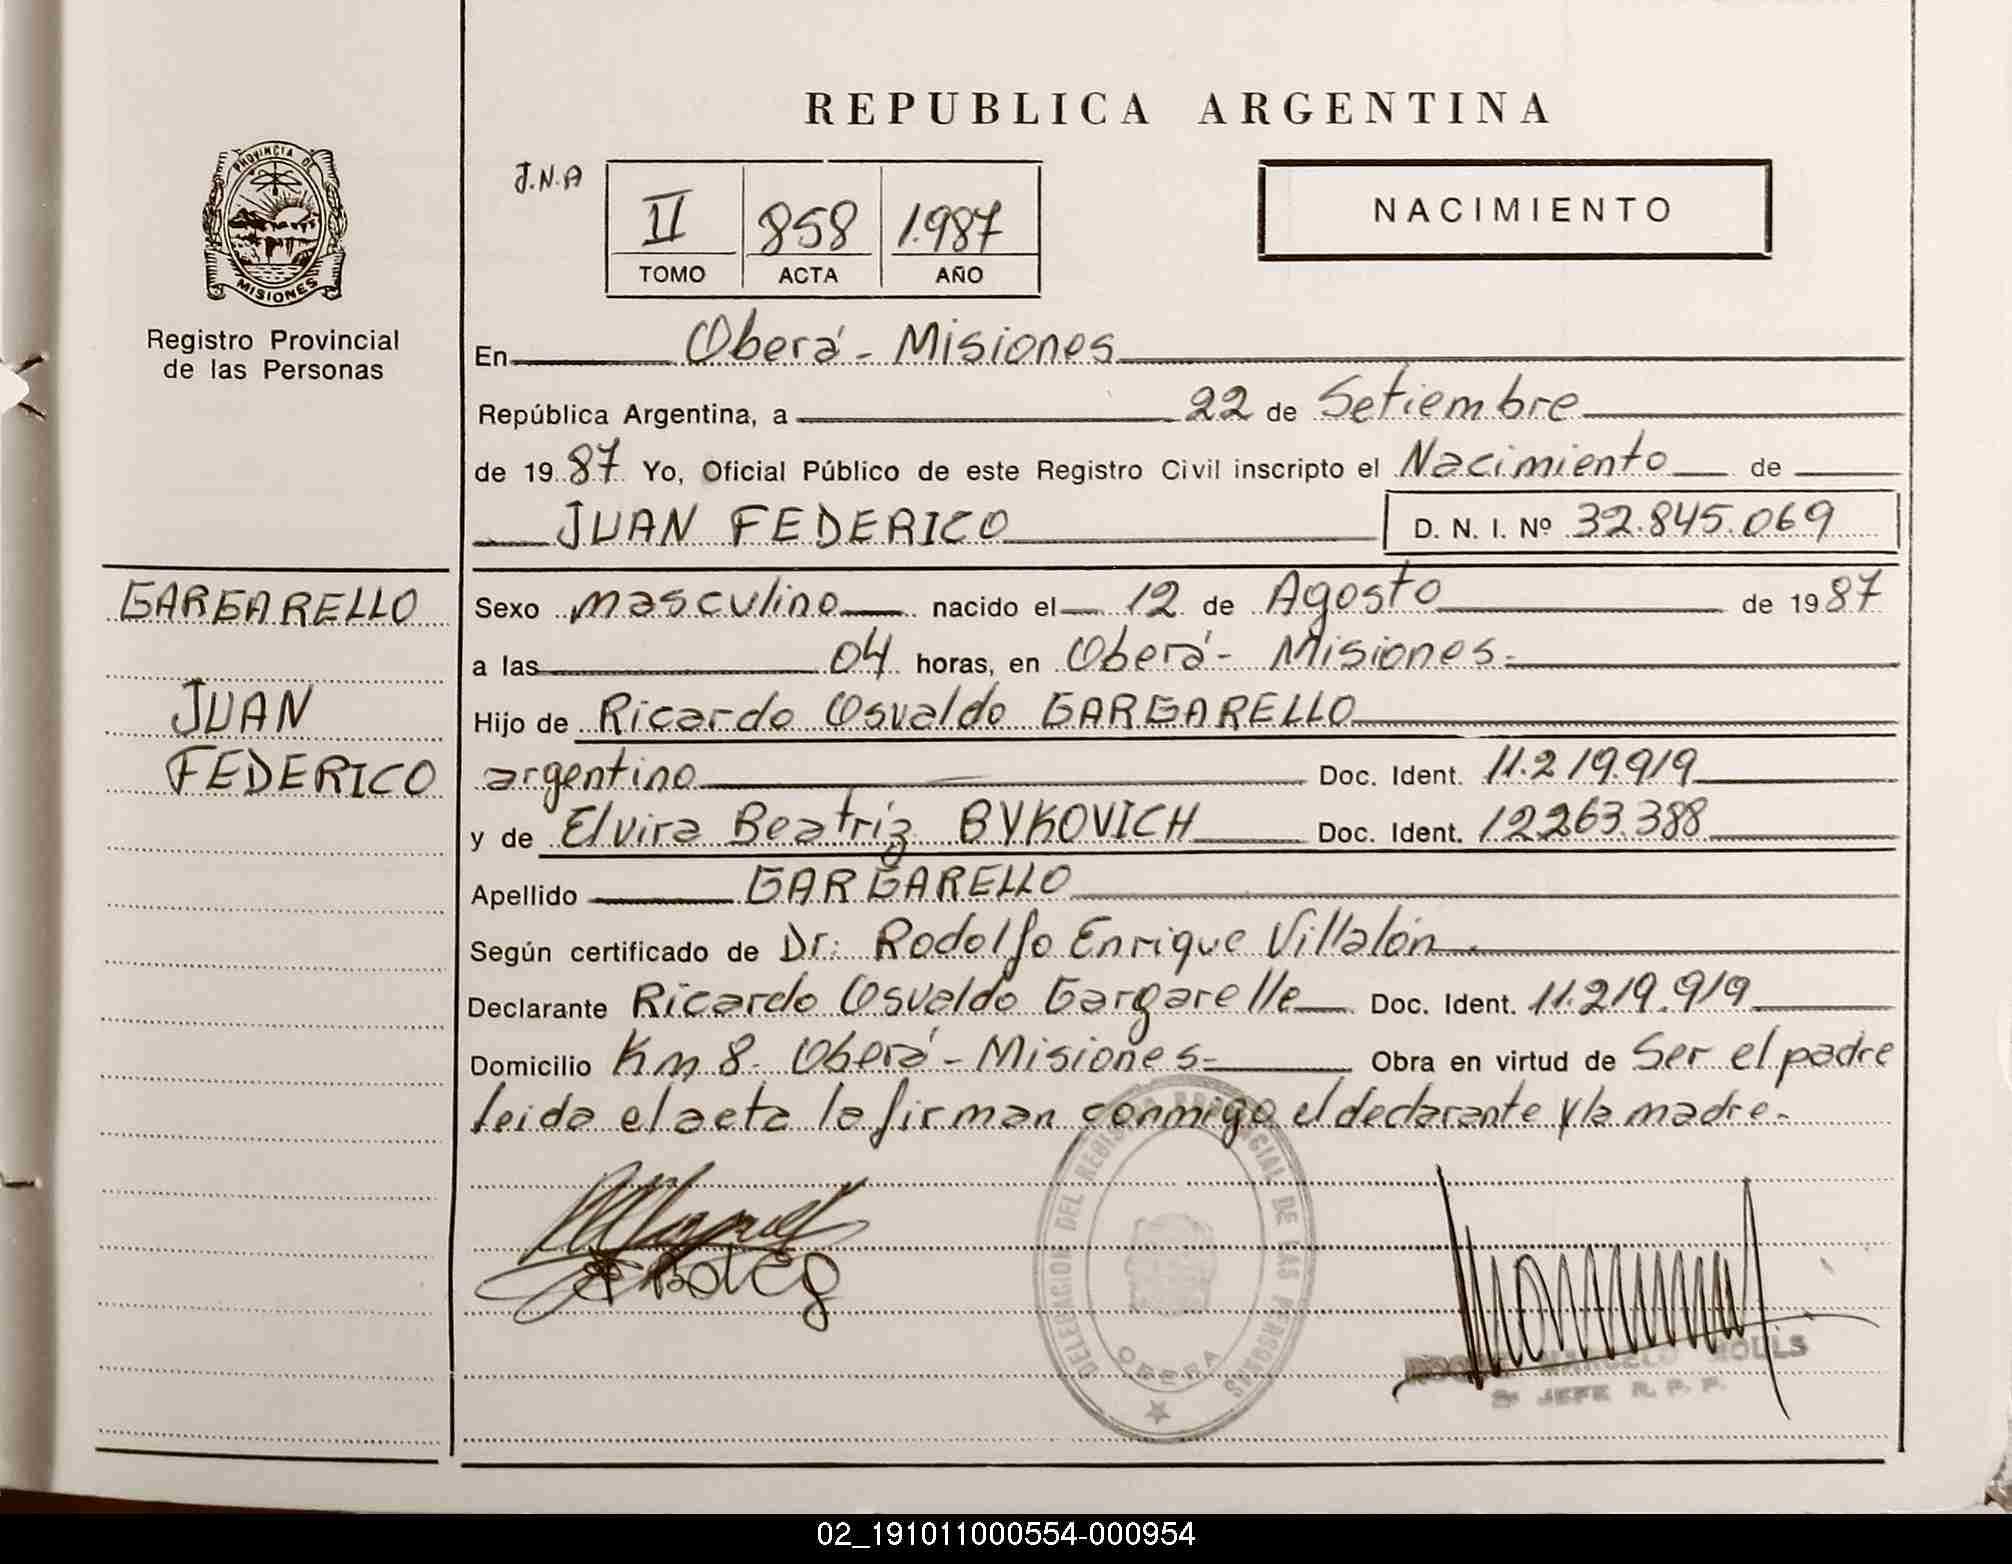 REPUBLICA ARGENTINA
PROVINCIA DE
MISIONES
Registro Provincial
de las Personas
J.N.A
II 858 1.987
TOMO ACTA AÑO
NACIMIENTO
En Oberá - Misiones
República Argentina, a 22 de Setiembre
de 19 87 Yo, Oficial Público de este Registro Civil inscripto el Nacimiento de
JUAN FEDERICO D. N. I. Nº 32.845.069
GARGARELLO
JUAN
FEDERICO
Sexo masculino nacido el 12 de Agosto de 19 87
a las 04 horas, en Oberá - Misiones.
Hijo de Ricardo Osvaldo GARGARELLO
argentino Doc. Ident. 11.219.919
y de Elvira Beatriz BYKOVICH Doc. Ident. 12.263.388
Apellido GARGARELLO
Según certificado de Dr: Rodolfo Enrique Villalón
Declarante Ricardo Osvaldo Gargarelle Doc. Ident. 11.219.919
Domicilio Km 8 - Oberá - Misiones - Obra en virtud de Ser el padre
leida el acta la firman conmigo el declarante y la madre -
DELEGACION DEL REGISTRO PROVINCIAL DE LAS PERSONAS
OBERA
MARCELO
JEFE R. P. P.
02_191011000554-000954